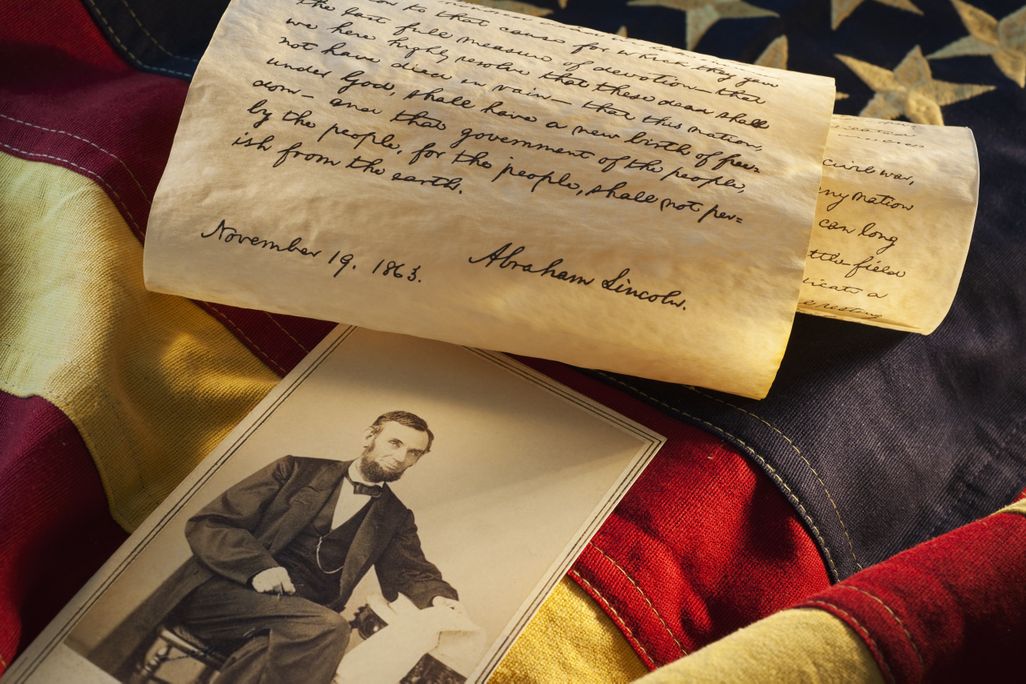 tion to that cause for which they gave
the last full measure of devotion— that
we here highly resolve that these dead shall
not have died in vain— that this nation,
under God, shall have a new birth of free=
dom— and that government of the people,
by the people, for the people, shall not per=
ish from the earth.
November 19. 1863.
Abraham Lincoln.
civil war,
any nation
can long
ttle field
dicate a
resting